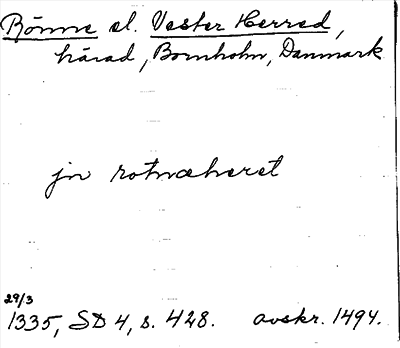 Rönne el. Vester Herred,
härad, Bornholm, Danmark
jn rotnæheret
29/3
1335, SD 4, s. 428. avskr. 1494.